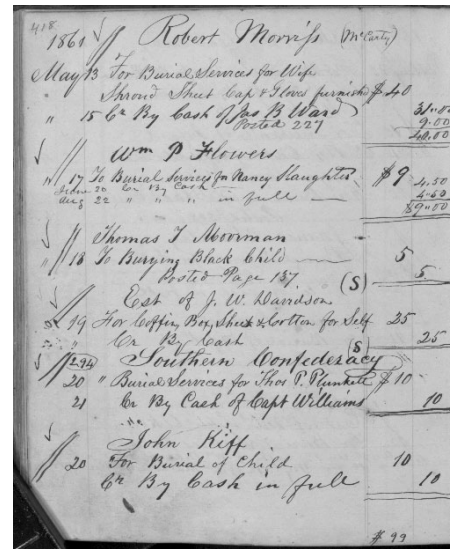 418
1861 Robert Morriss (McCarty)
May 13 For Burial Services for Wife
Shroud Sheet Cap & Gloves furnished $40
" 15 Cr By Cash of Jas B Ward 31.00
Posted 227 9.00
40.00
Wm P Flowers
" 17 To Burial Services for Nancy Slaughter $9 4.50
June 20 Cr By Cash 4.50
Aug 22 " " " in full $9.00
Thomas T Moorman
" 18 To Burying Black Child 5
Posted Page 137 5
(S)
Est of J. W. Davidson
" 19 For Coffin Box Sheet & Cotton for Self 25
" Cr By Cash 25
(S)
294 Southern Confederacy
20 " Burial Services for Thos P. Plunkett $10
21 Cr By Cash of Capt Williams 10
John Kiff
" 20 For Burial of Child 10
Cr By Cash in full 10
$99